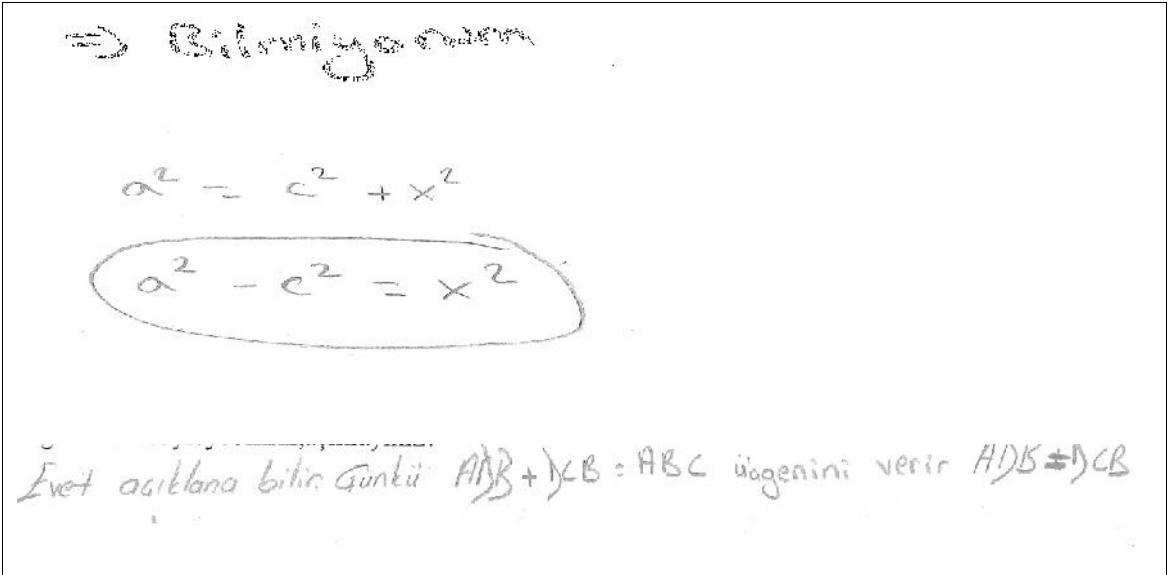 ⇒ Bilmiyorum
a² = c² + x²
a² - c² = x²
Evet açıklana bilir. Çünkü ADB + DCB = ABC üçgenini verir ADB = DCB